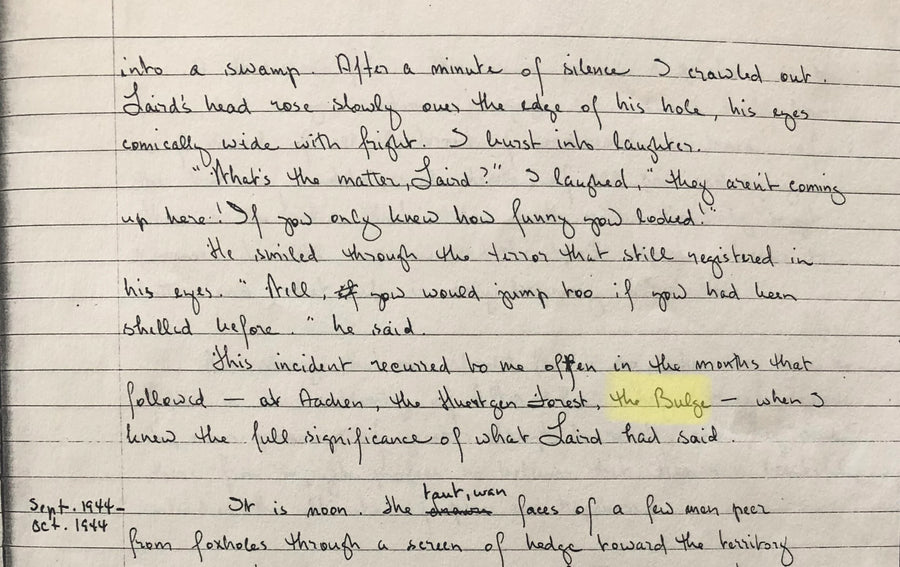 into a swamp. After a minute of silence I crawled out.
Laird's head rose slowly over the edge of his hole, his eyes
comically wide with fright. I burst into laughter.
"What's the matter, Laird?" I laughed, "they aren't coming
up here! If you only knew how funny you looked!"
He smiled through the terror that still registered in
his eyes. "Well, you would jump too if you had been
shelled before." he said.
This incident recurred to me often in the months that
followed — at Aachen, the Huertgen Forest, the Bulge — when I
knew the full significance of what Laird had said.
taut, wan
Sept. 1944-
It is noon. The drawn faces of a few men peer
Oct. 1944
from foxholes through a screen of hedge toward the territory